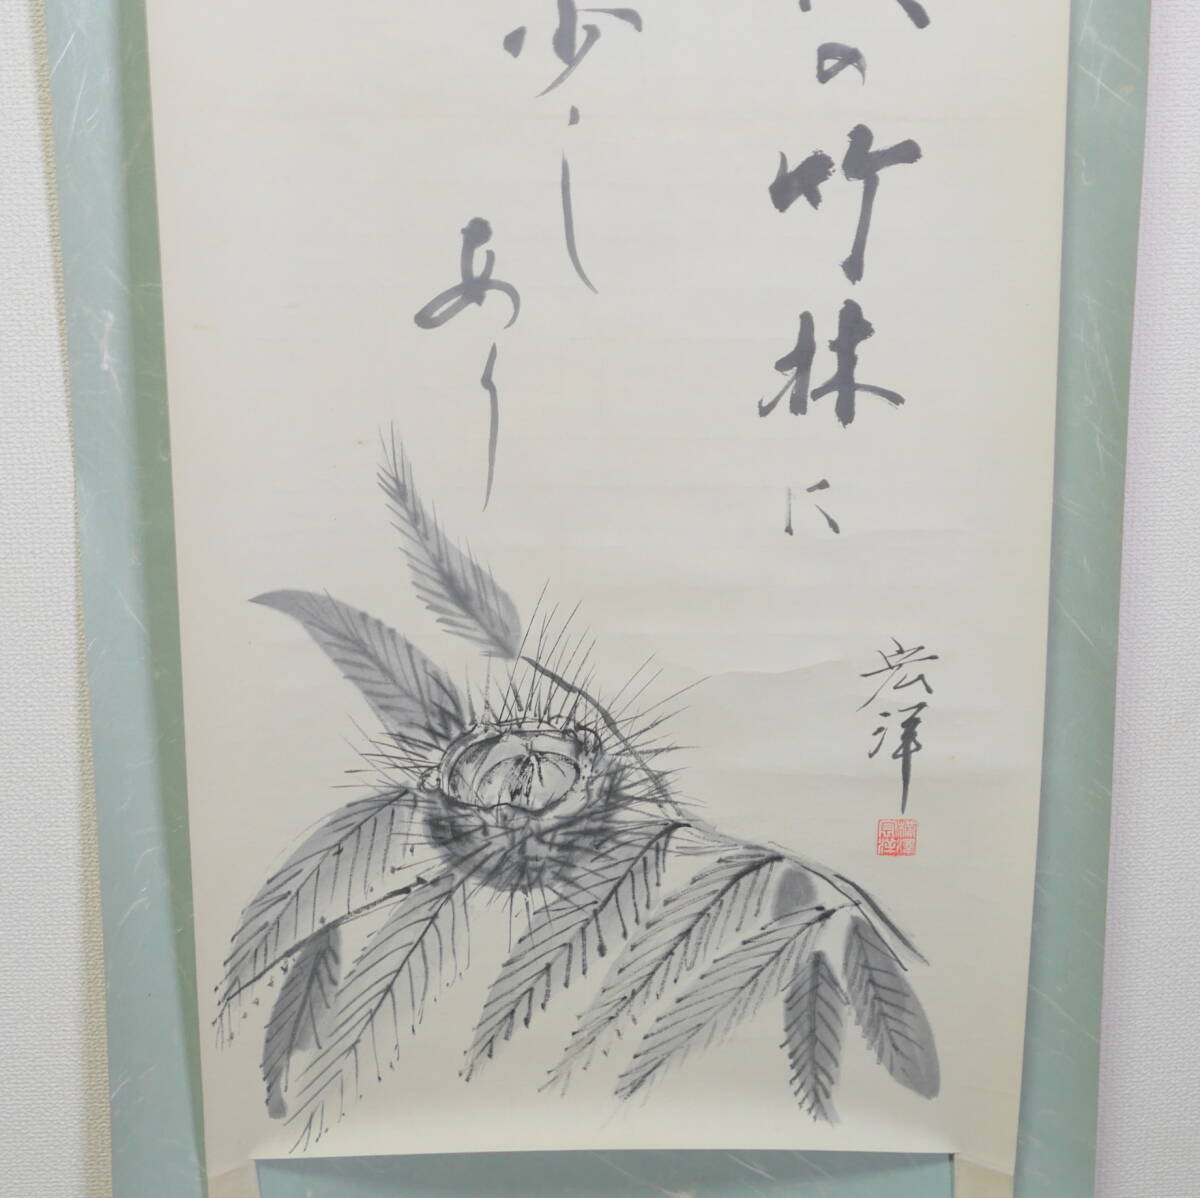 の竹林に
少しあり
宏洋